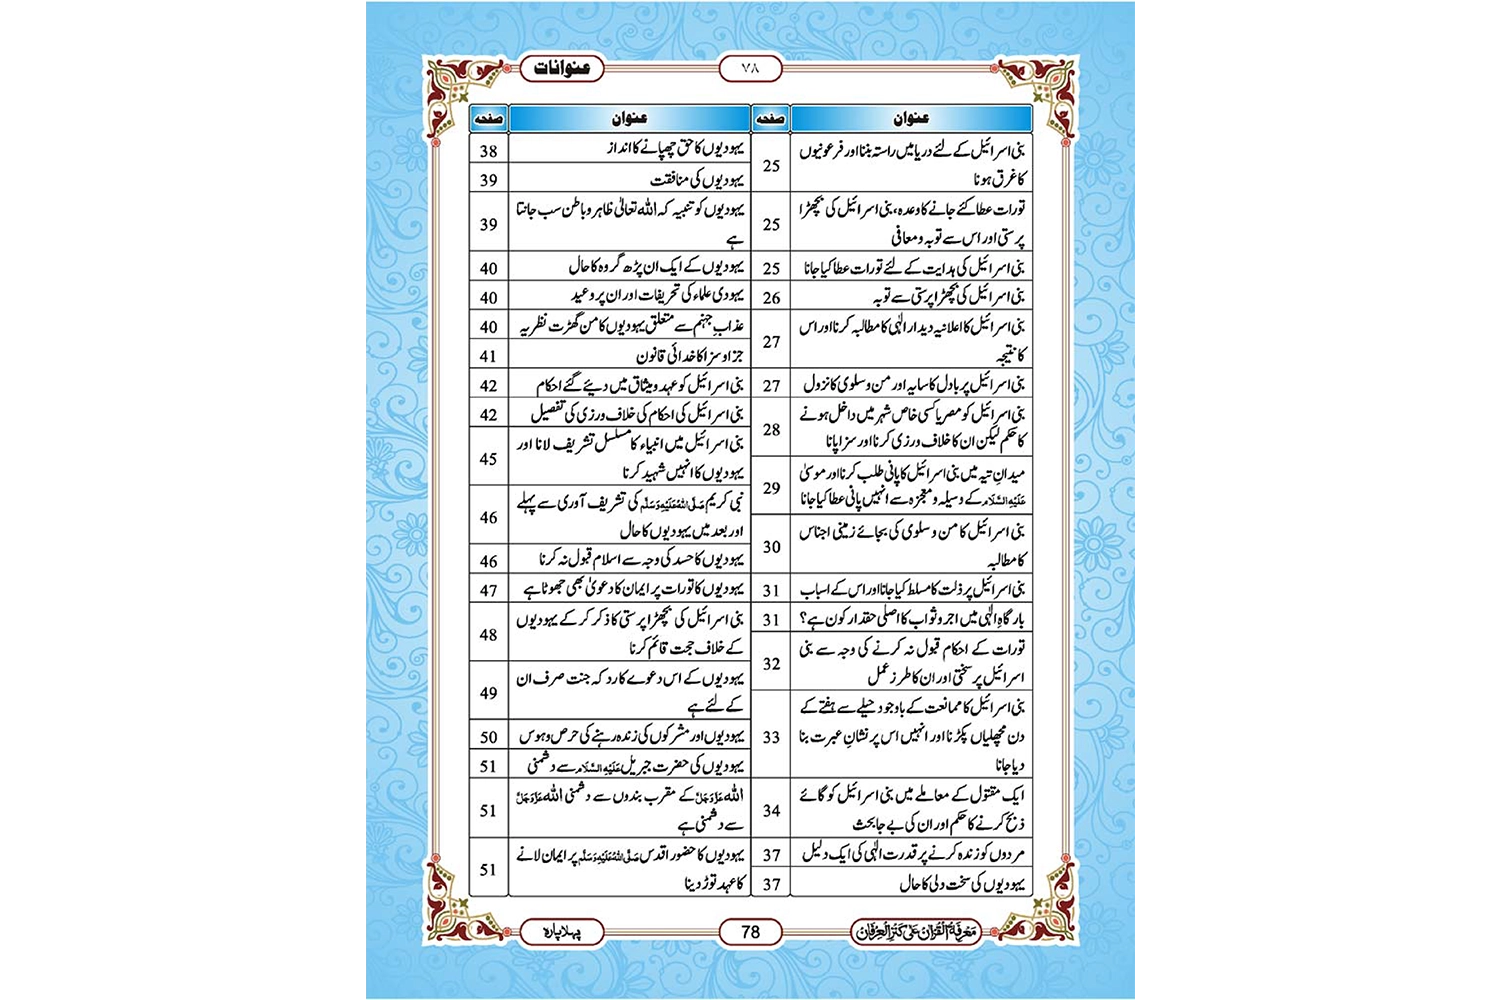 عنوانات
٧٨
عنوان صفحہ
بنی اسرائیل کے لئے دریا میں راستہ بننا اور فرعونیوں
کا غرق ہونا 25
تورات عطا کئے جانے کا وعدہ، بنی اسرائیل کی بچھڑا
پرستی اور اس سے توبہ و معافی 25
بنی اسرائیل کی ہدایت کے لئے تورات عطا کیا جانا 25
بنی اسرائیل کی بچھڑا پرستی سے توبہ 26
بنی اسرائیل کا اعلانیہ دیدار الٰہی کا مطالبہ کرنا اور اس
کا نتیجہ 27
بنی اسرائیل پر بادل کا سایہ اور من و سلوی کا نزول 27
بنی اسرائیل کو مصر یا کسی خاص شہر میں داخل ہونے
کا حکم لیکن ان کا خلاف ورزی کرنا اور سزا پانا 28
میدانِ تیہ میں بنی اسرائیل کا پانی طلب کرنا اور موسیٰ
عَلَیْہِ السَّلَام کے وسیلہ و معجزہ سے انہیں پانی عطا کیا جانا 29
بنی اسرائیل کا من و سلوی کی بجائے زمینی اجناس
کا مطالبہ 30
بنی اسرائیل پر ذلت کا مسلط کیا جانا اور اس کے اسباب 31
بارگاہِ الٰہی میں اجر و ثواب کا اصلی حقدار کون ہے؟ 31
تورات کے احکام قبول نہ کرنے کی وجہ سے بنی
اسرائیل پر سختی اور ان کا طرزِ عمل 32
بنی اسرائیل کا ممانعت کے باوجود حیلے سے ہفتے کے
دن مچھلیاں پکڑنا اور انہیں اس پر نشانِ عبرت بنا
دیا جانا 33
ایک مقتول کے معاملے میں بنی اسرائیل کو گائے
ذبح کرنے کا حکم اور ان کی بے جا بحث 34
مردوں کو زندہ کرنے پر قدرت الٰہی کی ایک دلیل 37
یہودیوں کی سخت دلی کا حال 37
عنوان صفحہ
یہودیوں کا حق چھپانے کا انداز 38
یہودیوں کی منافقت 39
یہودیوں کو تنبیہ کہ اللہ تعالیٰ ظاہر و باطن سب جانتا
ہے 39
یہودیوں کے ایک ان پڑھ گروہ کا حال 40
یہودی علماء کی تحریفات اور ان پر وعید 40
عذابِ جہنم سے متعلق یہودیوں کا من گھڑت نظریہ 40
جزا و سزا کا خدائی قانون 41
بنی اسرائیل کو عہد و میثاق میں دیئے گئے احکام 42
بنی اسرائیل کی احکام کی خلاف ورزی کی تفصیل 42
بنی اسرائیل میں انبیاء کا مسلسل تشریف لانا اور
یہودیوں کا انہیں شہید کرنا 45
نبی کریم صَلَّی اللہُ عَلَیْہِ وَسَلَّم کی تشریف آوری سے پہلے
اور بعد میں یہودیوں کا حال 46
یہودیوں کا حسد کی وجہ سے اسلام قبول نہ کرنا 46
یہودیوں کا تورات پر ایمان کا دعویٰ بھی جھوٹا ہے 47
بنی اسرائیل کی بچھڑا پرستی کا ذکر کر کے یہودیوں
کے خلاف حجت قائم کرنا 48
یہودیوں کے اس دعوے کا رد کہ جنت صرف ان
کے لئے ہے 49
یہودیوں اور مشرکوں کی زندہ رہنے کی حرص و ہوس 50
یہودیوں کی حضرت جبریل عَلَیْہِ السَّلَام سے دشمنی 51
اللہ عَزَّوَجَلَّ کے مقرب بندوں سے دشمنی اللہ عَزَّوَجَلَّ
سے دشمنی ہے 51
یہودیوں کا حضور اقدس صَلَّی اللہُ عَلَیْہِ وَسَلَّم پر ایمان لانے
کا عہد توڑ دینا 51
مَعْرِفَۃُ الْقُرْاٰن عَلٰی کَنْزِ الْعِرْفَان
78
پہلا پارہ